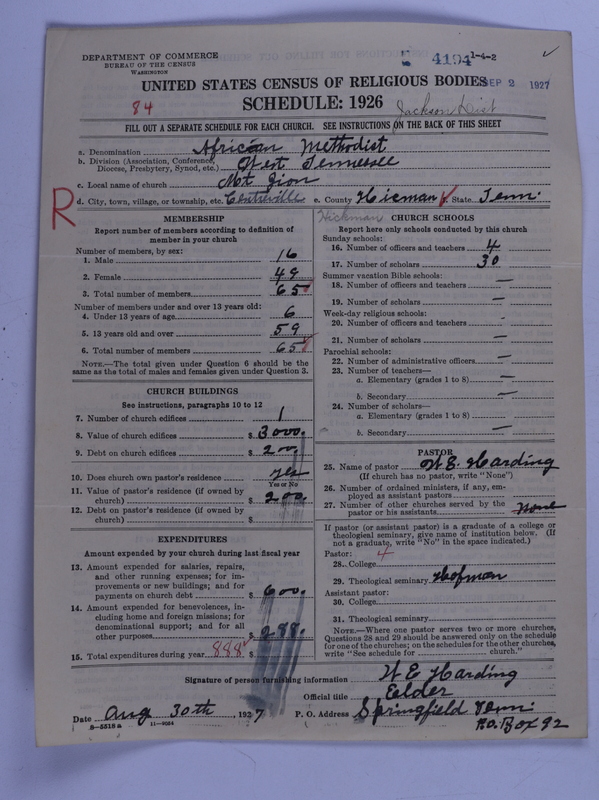 DEPARTMENT OF COMMERCE
BUREAU OF THE CENSUS
WASHINGTON
4194 1-4-2
SEP 2 1927
UNITED STATES CENSUS OF RELIGIOUS BODIES
84
SCHEDULE: 1926
Jackson Dist
FILL OUT A SEPARATE SCHEDULE FOR EACH CHURCH. SEE INSTRUCTIONS ON THE BACK OF THIS SHEET
a. Denomination African Methodist
b. Division (Association, Conference, Diocese, Presbytery, Synod, etc.) West Tennessee
c. Local name of church Mt Zion
R
d. City, town, village, or township, etc. Centreville e. County Hicman State Tenn.
Hickman
MEMBERSHIP
Report number of members according to definition of
member in your church
Number of members, by sex:
1. Male 16
2. Female 49
3. Total number of members 65
Number of members under and over 13 years old:
4. Under 13 years of age 6
5. 13 years old and over 59
6. Total number of members 65
NOTE.—The total given under Question 6 should be the
same as the total of males and females given under Question 3.
CHURCH BUILDINGS
See instructions, paragraphs 10 to 12
7. Number of church edifices 1
8. Value of church edifices $ 3000.
9. Debt on church edifices $ 200.
10. Does church own pastor's residence yes
Yes or No
11. Value of pastor's residence (if owned by
church) $ 200
12. Debt on pastor's residence (if owned by
church) $
EXPENDITURES
Amount expended by your church during last fiscal year
13. Amount expended for salaries, repairs,
and other running expenses; for im-
provements or new buildings; and for
payments on church debt $ 600.
14. Amount expended for benevolences, in-
cluding home and foreign missions; for
denominational support; and for all
other purposes $ 288.
15. Total expenditures during year 888 $
CHURCH SCHOOLS
Report here only schools conducted by this church
Sunday schools:
16. Number of officers and teachers 4
17. Number of scholars 30
Summer vacation Bible schools:
18. Number of officers and teachers —
19. Number of scholars —
Week-day religious schools:
20. Number of officers and teachers —
21. Number of scholars —
Parochial schools:
22. Number of administrative officers —
23. Number of teachers—
a. Elementary (grades 1 to 8) —
b. Secondary —
24. Number of scholars—
a. Elementary (grades 1 to 8) —
b. Secondary —
PASTOR
25. Name of pastor W E. Harding
(If church has no pastor, write "None")
26. Number of ordained ministers, if any, em-
ployed as assistant pastors
27. Number of other churches served by the
pastor or his assistants none
If pastor (or assistant pastor) is a graduate of a college or
theological seminary, give name of institution below. (If
not a graduate, write "No" in the space indicated.)
Pastor:
28. College
29. Theological seminary Hofman
Assistant pastor:
30. College
31. Theological seminary
NOTE.—Where one pastor serves two or more churches,
Questions 28 and 29 should be answered only on the schedule
for one of the churches; on the schedules for the other churches,
write "See schedule for church."
Signature of person furnishing information W E Harding
Official title Eelder
Date Aug 30th, 1927 P. O. Address Springfield Tenn.
P.O. Box 92
8-5518a 11-9054